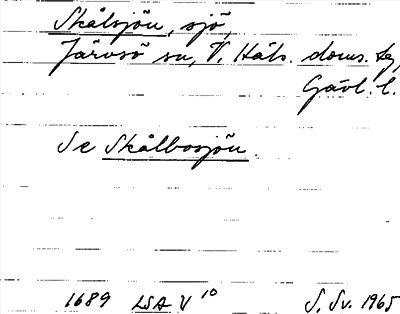 Skålsjön, sjö,
Järvsö sn, V. Häls. doms. tg,
Gävl. l.
Se Skålbosjön.
1689 LSA V 10 S. Sv. 1965